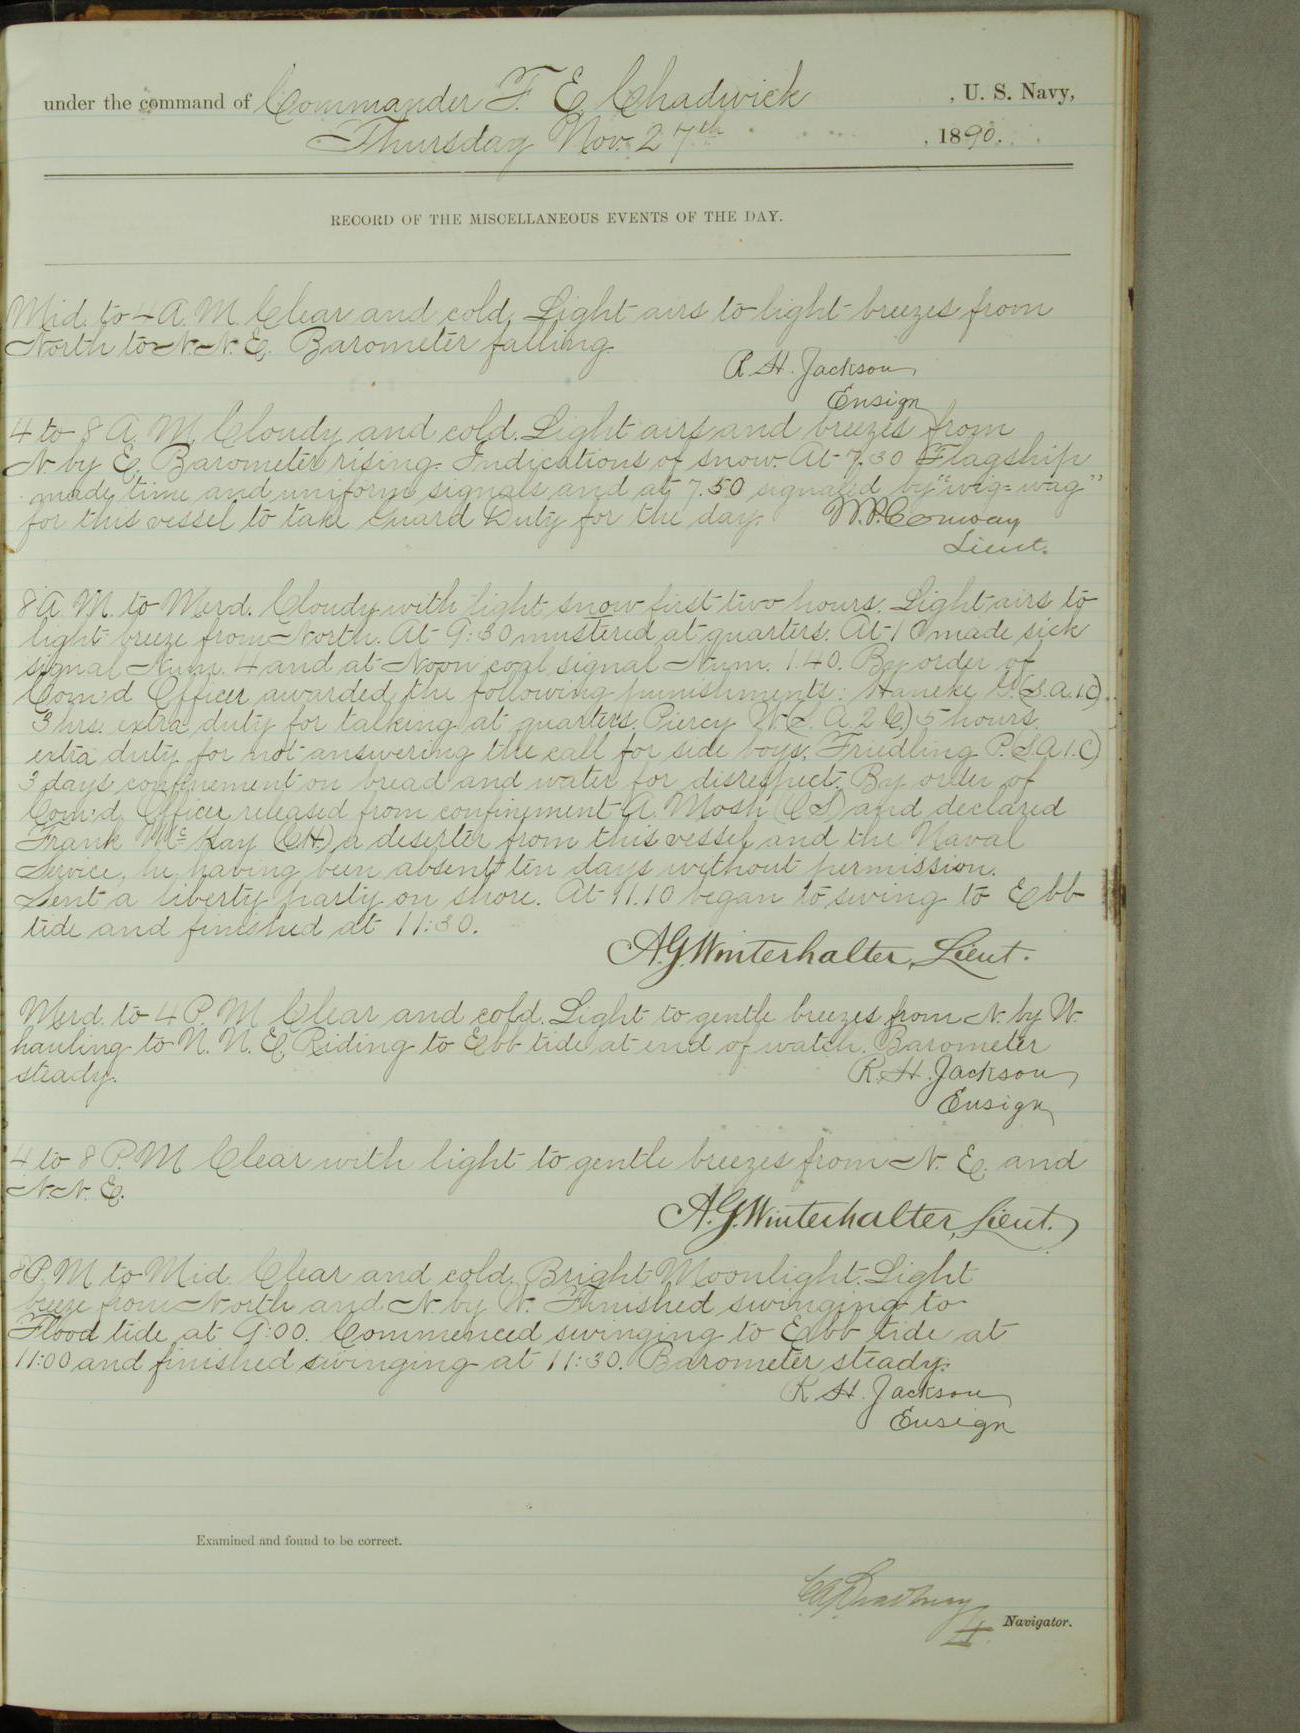 under the command of Commander F. E. Chadwick , U. S. Navy,
Thursday Nov. 27th , 1890.
RECORD OF THE MISCELLANEOUS EVENTS OF THE DAY.
Mid. to 4 A. M. Clear and cold. Light airs to light breezes from
North to N. N. E. Barometer falling.
R. H. Jackson
Ensign
4 to 8 A. M. Cloudy and cold. Light airs and breezes from
N by E. Barometer rising. Indications of snow. At 7.30 Flagship
made time and uniform signals and at 7.50 signaled by "wig-wag"
for this vessel to take Guard Duty for the day. W. P. Conway
Lieut.
8 A. M. to Merd. Cloudy with light snow first two hours. Light airs to
light breeze from North. At 9:30 mustered at quarters. At 10 made sick
signal Num. 4 and at Noon coal signal Num. 1.40. By order of
Com'd Officer awarded the following punishments: Haneke G. (S.A.1.C).
3 hrs. extra duty for talking at quarters. Piercy W. (S. A. 2 C.) 5 hours
extra duty for not answering the call for side boys. Friedling P. S.A.1.C)
3 days confinement on bread and water for disrespect. By order of
Com'd. Officer released from confinement A. Mosh (CS) and declared
Frank Mc Kay (CH.) a deserter from this vessel and the Naval
Service, he having been absent ten days without permission.
Sent a liberty party on shore. At 11.10 began to swing to Ebb
tide and finished at 11:30.
A. G. Winterhalter, Lieut.
Merd. to 4 P. M. Clear and cold. Light to gentle breezes from N. by W.
hauling to N. N. E. Riding to Ebb tide at end of watch. Barometer
steady.
R. H. Jackson
Ensign
4 to 8 P. M. Clear with light to gentle breezes from N. E. and
N. N. E.
A. G. Winterhalter, Lieut.
8 P. M. to Mid. Clear and cold. Bright Moonlight. Light
breeze from North and N by W. Finished swinging to
Flood tide at 9:00. Commenced swinging to Ebb tide at
11:00 and finished swinging at 11:30. Barometer steady.
R. H. Jackson
Ensign
Examined and found to be correct.
Navigator.